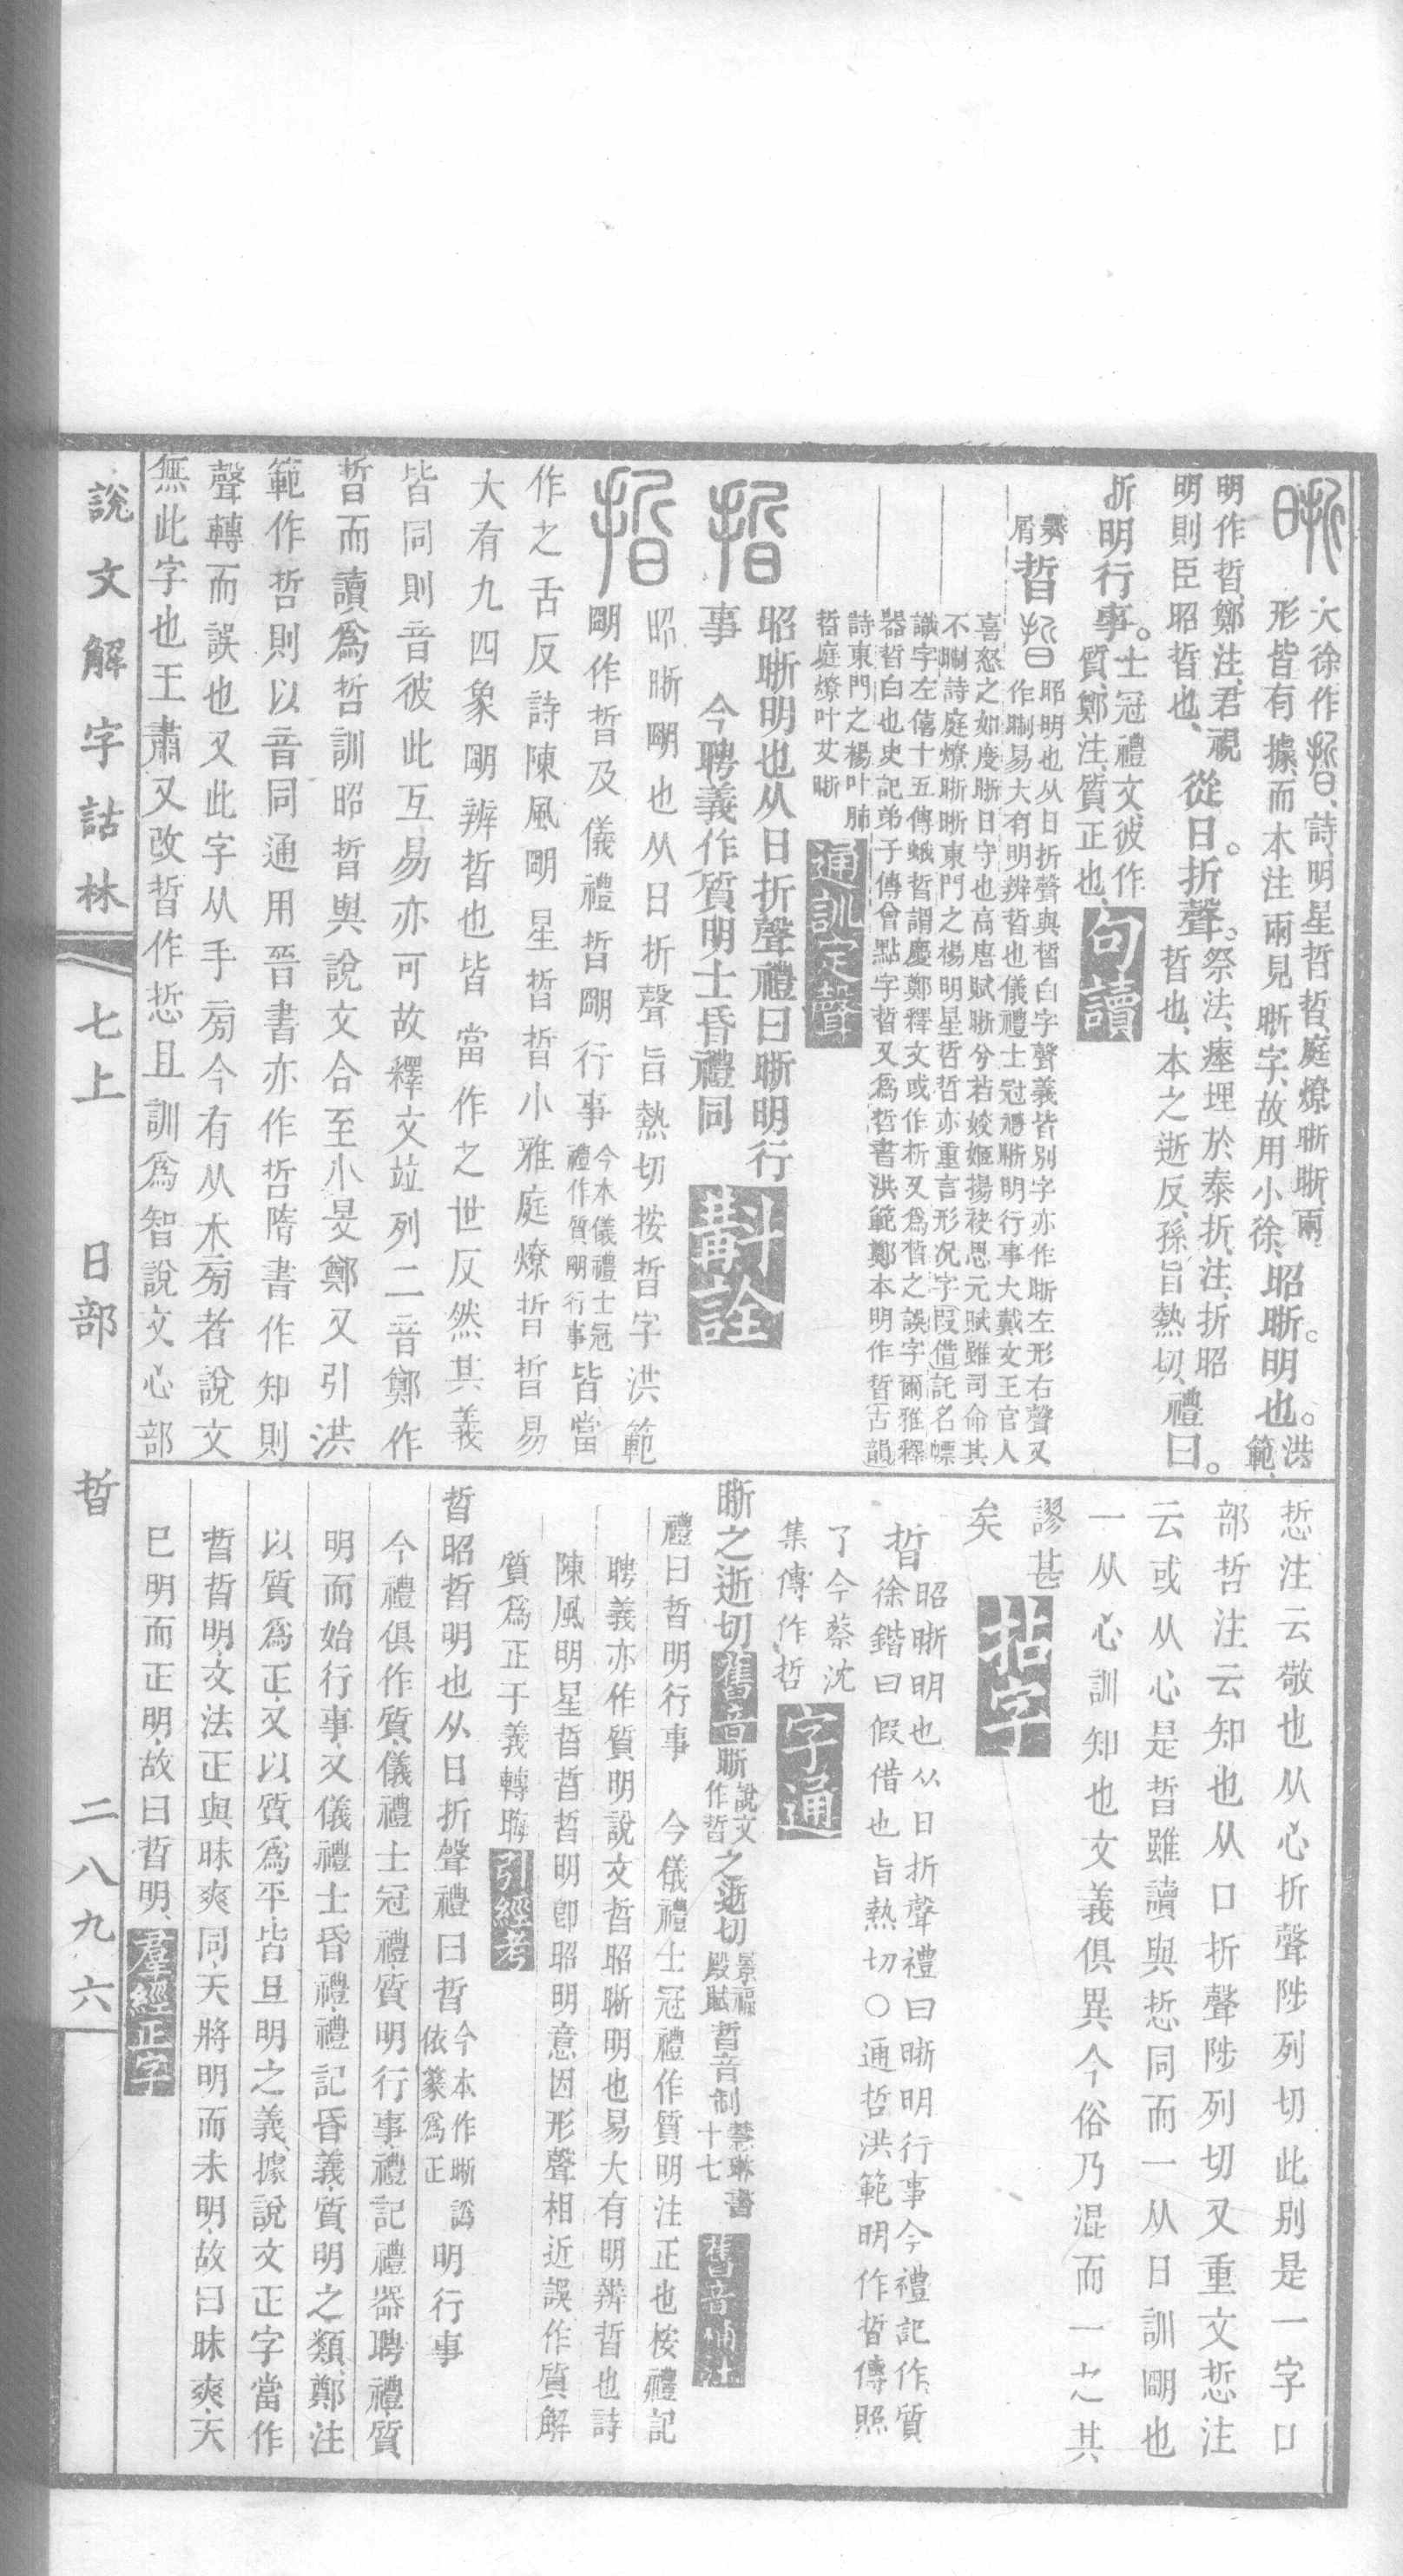 大徐作晢、詩、明星哲哲、庭燎晣晣、兩
形皆有據、而本注兩見晣字、故用小徐、昭晣。明也。洪範、
明作哲、鄭注、君視
明則臣昭晢也、從日。折聲。祭法、瘞埋於泰折、注、折昭
晢也、本之逝反、孫、旨熱切、禮曰。
晣明行事。士冠禮文、彼作
質、鄭注、質正也、句讀
晢昭明也从日折聲與皙白字聲義皆別字亦作晣左形右聲又
作晰易大有明辨晢也儀禮士冠禮晣明行事大戴文王官人
喜怒之如度晣日守也高唐賦晣兮若姣姬揚袂思元賦雖司命其
不晰詩庭燎晣晣東門之楊明星哲哲亦重言形况字叚借託名幖
識字左僖十五傳蛾晢謂慶鄭釋文或作析又爲皙之誤字爾雅釋
器晢白也史記弟子傳曾點字晢又爲哲書洪範鄭本明作晢古韻
詩東門之楊叶肺
晢庭燎叶艾晣通訓定聲
晢昭晣明也从日折聲禮曰晣明行
事　今聘義作質明士昏禮同斠詮
晢昭晣朙也从日折聲旨熱切按晢字洪範
朙作晢及儀禮晢朙行事今本儀禮士冠
禮作質朙行事皆當
作之舌反詩陳風朙星晢晢小雅庭燎晢晢易
大有九四象朙辨晢也皆當作之世反然其義
皆同則音彼此互易亦可故釋文竝列二音鄭作
晢而讀爲哲訓昭晢與說文合至小旻鄭又引洪
範作哲則以音同通用晉書亦作哲隋書作知則
聲轉而誤也又此字从手㫄今有从木㫄者說文
無此字也王肅又改晢作悊且訓爲智說文心部
悊注云敬也从心折聲陟列切此別是一字口
部哲注云知也从口折聲陟列切又重文悊注
云或从心是晢雖讀與悊同而一从日訓朙也
一从心訓知也文義俱異今俗乃混而一之其
謬甚
矣拈字
晢昭晣明也从日折聲禮曰晣明行事今禮記作質
徐鍇曰假借也旨熱切〇通哲洪範明作晢傳照
了今蔡沈
集傳作哲字通
晣之逝切舊音晣說文
作晢之逝切景福
殿賦晢音制慧琳書
十七舊音補注
禮曰晢明行事　今儀禮士冠禮作質明注正也桉禮記
聘義亦作質明說文晢昭晣明也易大有明辨晢也詩
陳風明星晢晢晢明卽昭明意因形聲相近誤作質解
質爲正于義轉晦引經考
晢昭晢明也从日折聲禮曰晢今本作晣譌
依篆爲正明行事
今禮俱作質、儀禮士冠禮、質明行事、禮記禮器聘禮、質
明而始行事、又儀禮士昏禮、禮記昏義、質明之類、鄭注
以質爲正、又以質爲平、皆旦明之義、據說文正字當作
晢、晢明、文法正與昧爽同、天將明而未明、故曰昧爽、天
巳明而正明、故曰晢明、羣經正字
說文解字詁林　七上　日部　晢　二八九六